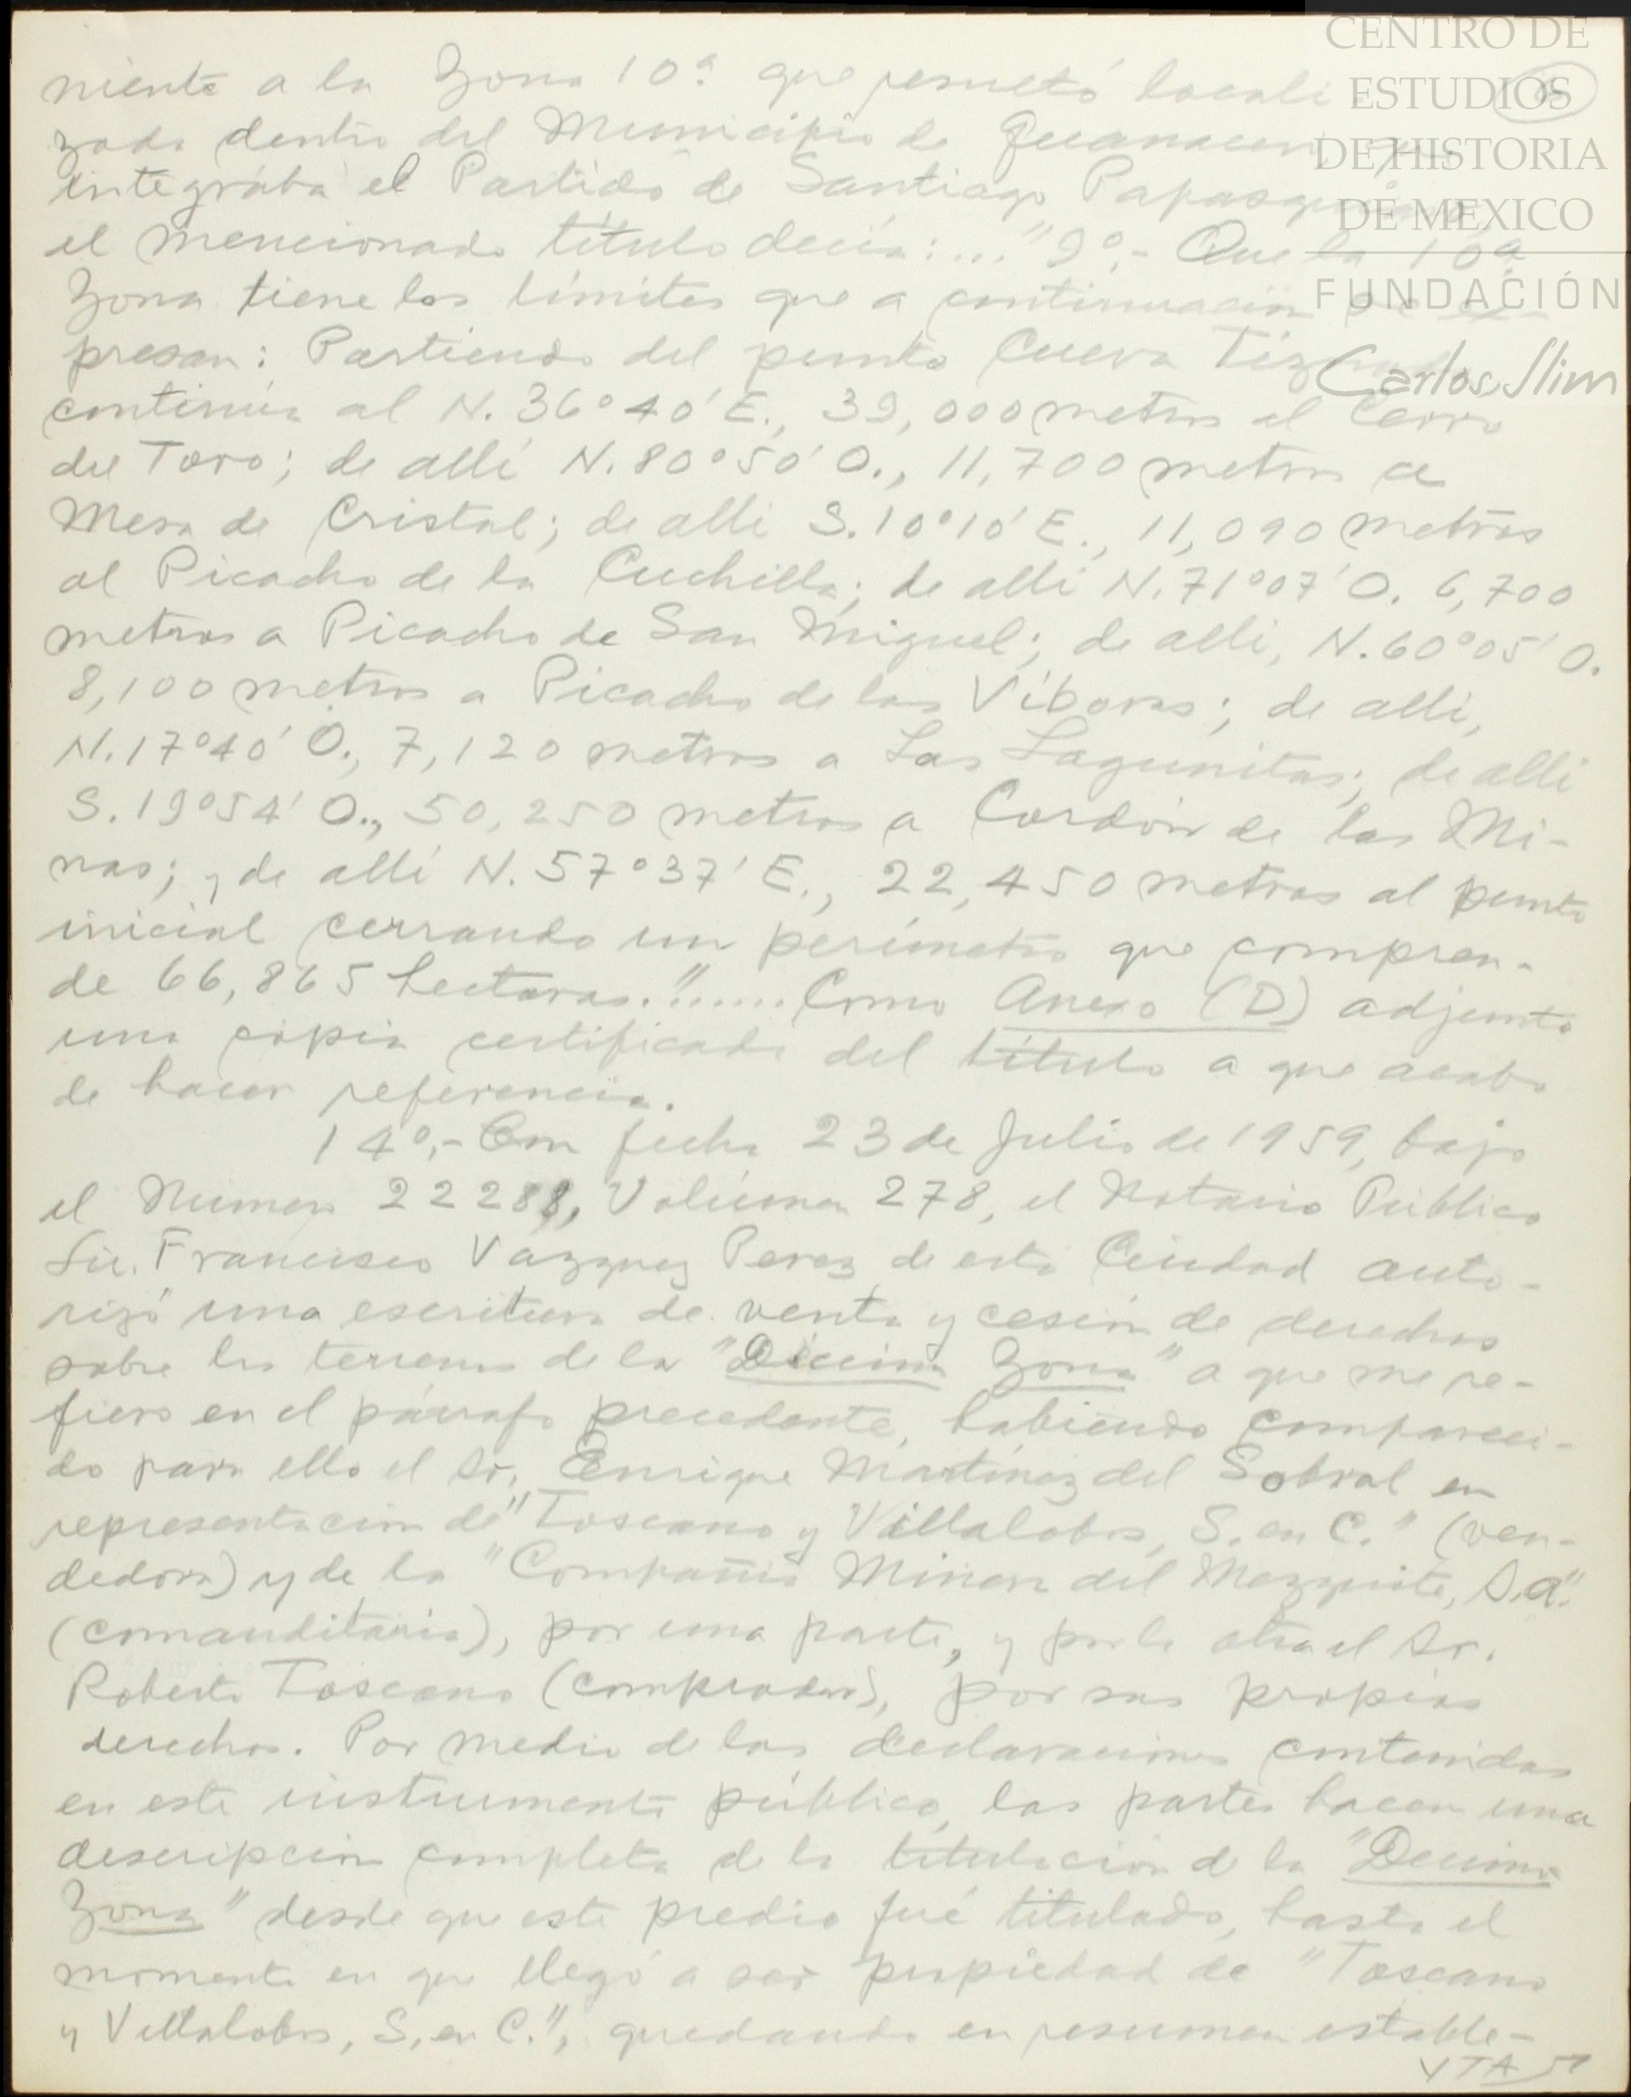 CENTRO DE
ESTUDIOS
DE HISTORIA
DE MEXICO
FUNDACIÓN
Carlos Slim
niente a la Zona 10ª que resultó locali
zada dentro del Municipio de Guanaceví, que
integraba el Partido de Santiago Papasquiaro
el mencionado título decía:... "9º.- Que la 10ª
Zona tiene los límites que a continuación se ex
presan: Partiendo del punto Cueva
continúa al N. 36°40' E., 39,000 metros al Cerro
del Toro; de allí N. 80°50' O., 11,700 metros a
Mesa de Cristal; de allí S. 10°10' E., 11,090 metros
al Picacho de la Cuchilla; de allí N. 71°07' O. 6,700
metros a Picacho de San Miguel; de allí, N. 60°05' O.
8,100 metros a Picacho de las Víboras; de allí,
N. 17°40' O., 7,120 metros a Las Lagunitas; de allí
S. 19°54' O., 50,250 metros a Cordón de las Mi-
nas; y de allí N. 57°37' E., 22,450 metros al punto
inicial cerrando un perímetro que compren-
de 66,865 hectaras."...... Como Anexo (D) adjunto
una copia certificada del título a que acabo
de hacer referencia.
14º.- Con fecha 23 de Julio de 1959, bajo
el Número 22288, Volúmen 278, el Notario Público
Lic. Francisco Vazquez Perez de esta Ciudad auto-
rizó una escritura de venta y cesión de derechos
sobre los terrenos de la "Décima Zona" a que me re-
fiero en el párrafo precedente, habiendo compareci-
do para ello el Sr. Enrique Martínez del Sobral en
representación de "Toscano y Villalobos, S. en C." (ven-
dedora) y de la "Compañía Minera del Mezquite, S.A."
(comanditaria), por una parte, y por la otra el Sr.
Roberto Toscano (comprador), por sus propios
derechos. Por medio de las declaraciones contenidas
en este instrumento público, las partes hacen una
descripción completa de la titulación de la "Decima
Zona" desde que este predio fué titulado, hasta el
momento en que llegó a ser propiedad de "Toscano
y Villalobos, S. en C.", quedando en resumen estable-
VTA